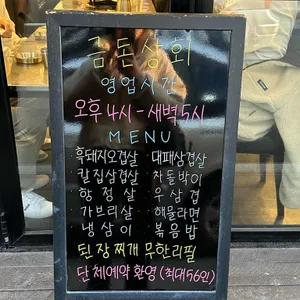 금돈상회
영업시간
오후 4시 - 새벽 5시
MENU
흑돼지오겹살 대패삼겹살
칼집삼겹살 차돌박이
항정살 우삼겹
가브리살 해물라면
냉삼이 볶음밥
된장찌개 무한리필
단체예약 환영 (최대56인)